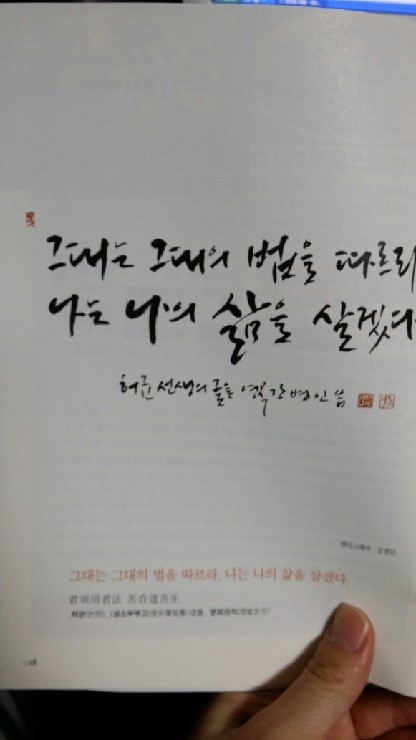 그대는 그대의 법을 따르라
나는 나의 삶을 살겠다
허균 선생의 글을 강병인 씀
그대는 그대의 법을 따르라, 나는 나의 삶을 살겠다.
君須用君法 吾自達吾生
허균